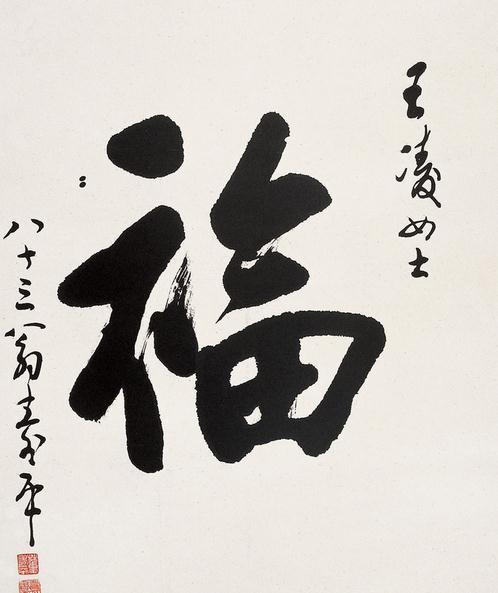 王凌女士
福
八十三翁寿平